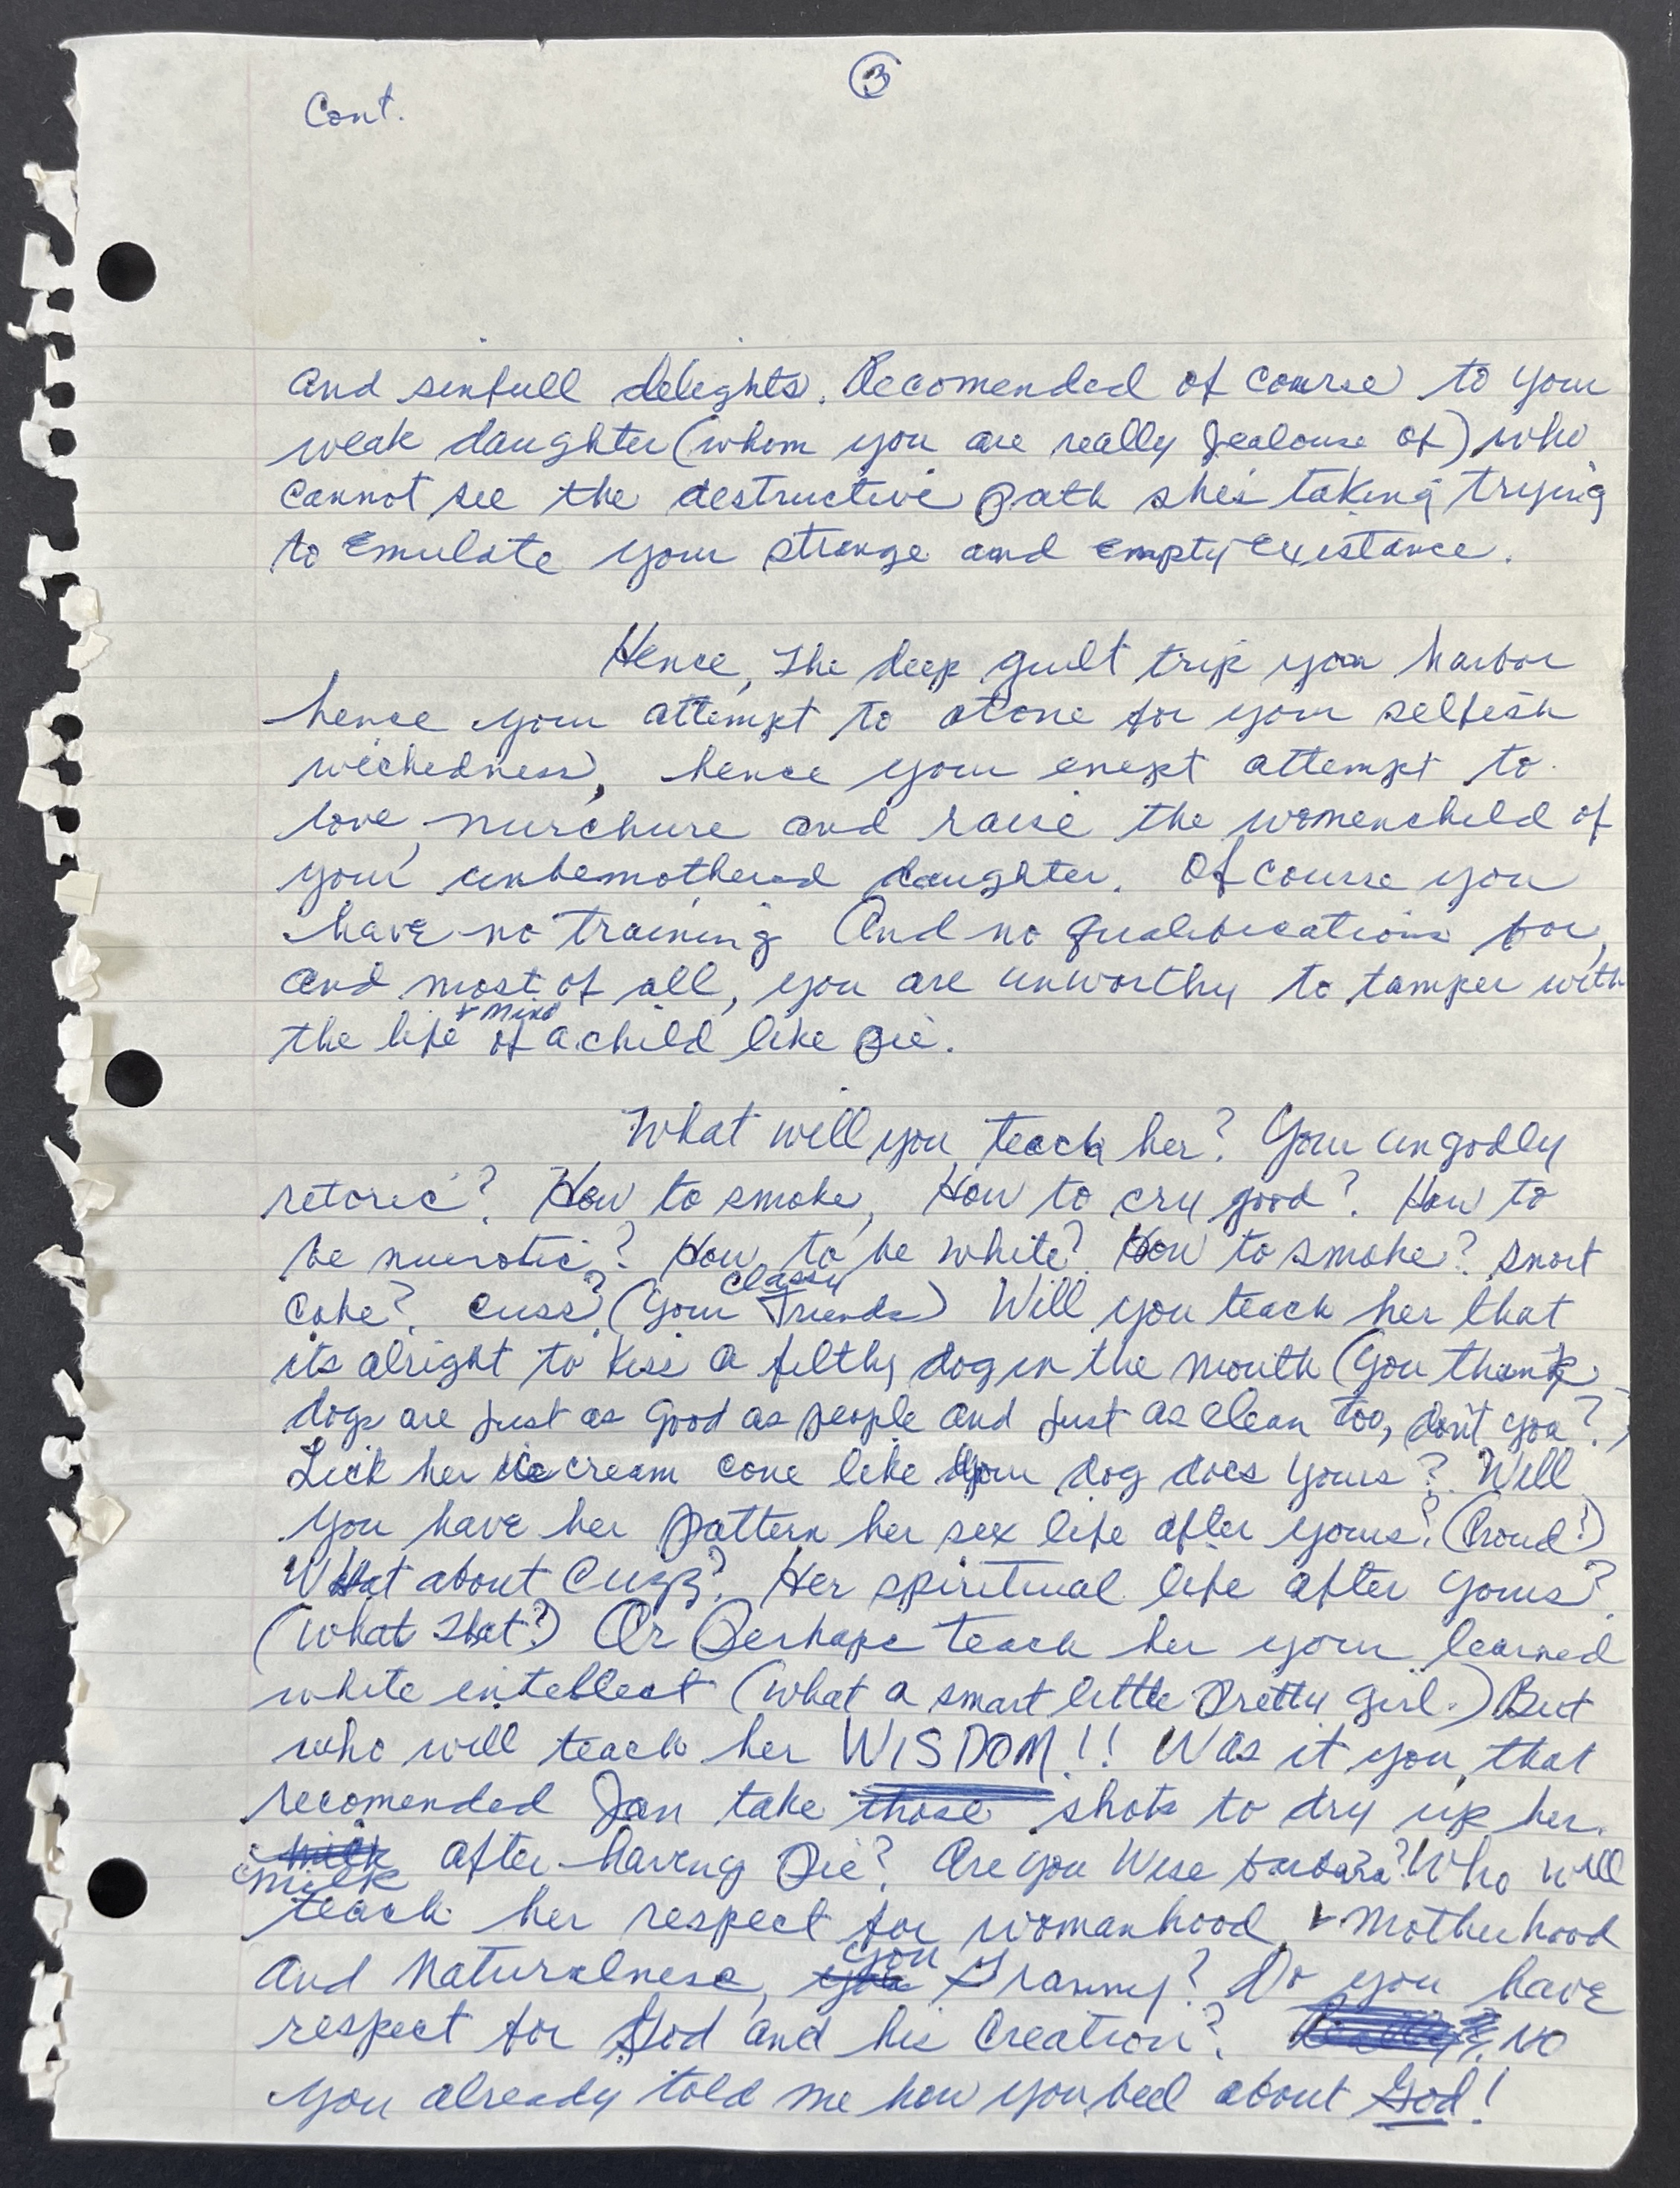 ③
Cont.
and sinfull delights. Recomended of course to your
weak daughter (whom you are really Jealouse of) who
cannot see the destructive path she's taking trying
to emulate your strange and empty existance.
Hence, the deep guilt trip you harbor
hence your attempt to atone for your selfish
wickedness, hence your inept attempt to
love, nurchure and raise the womenchild of
your unbemothered daughter. Of course you
have no training And no qualifications for,
and most of all, you are unworthy to tamper with
the life + mind of a child like Pie.
What will you teach her? Your ungodly
retoric? How to smoke, How to cry good? How to
be nuerotic? How to be white? How to smoke? snort
Coke? cuss? (your classy friends) Will you teach her that
its alright to kiss a filthy dog in the mouth (you think
dogs are just as good as people and just as clean too, don't you?)
Lick her ice cream cone like your dog does yours? Will
you have her pattern her sex life after yours? (Proud?)
What about Her spiritual life after yours?
(what shit?) Or Perhaps teach her your learned
white intellect (what a smart little Pretty girl.) But
who will teach her WISDOM!! Was it you, that
recomended Jan take those shots to dry up her
milk milk after having Pie? Are you Wise barbara? Who will
teach her respect for womanhood + Motherhood
And Naturalness, you you Granny? Do you have
respect for God and his Creation? No
you already told me how you feel about God!